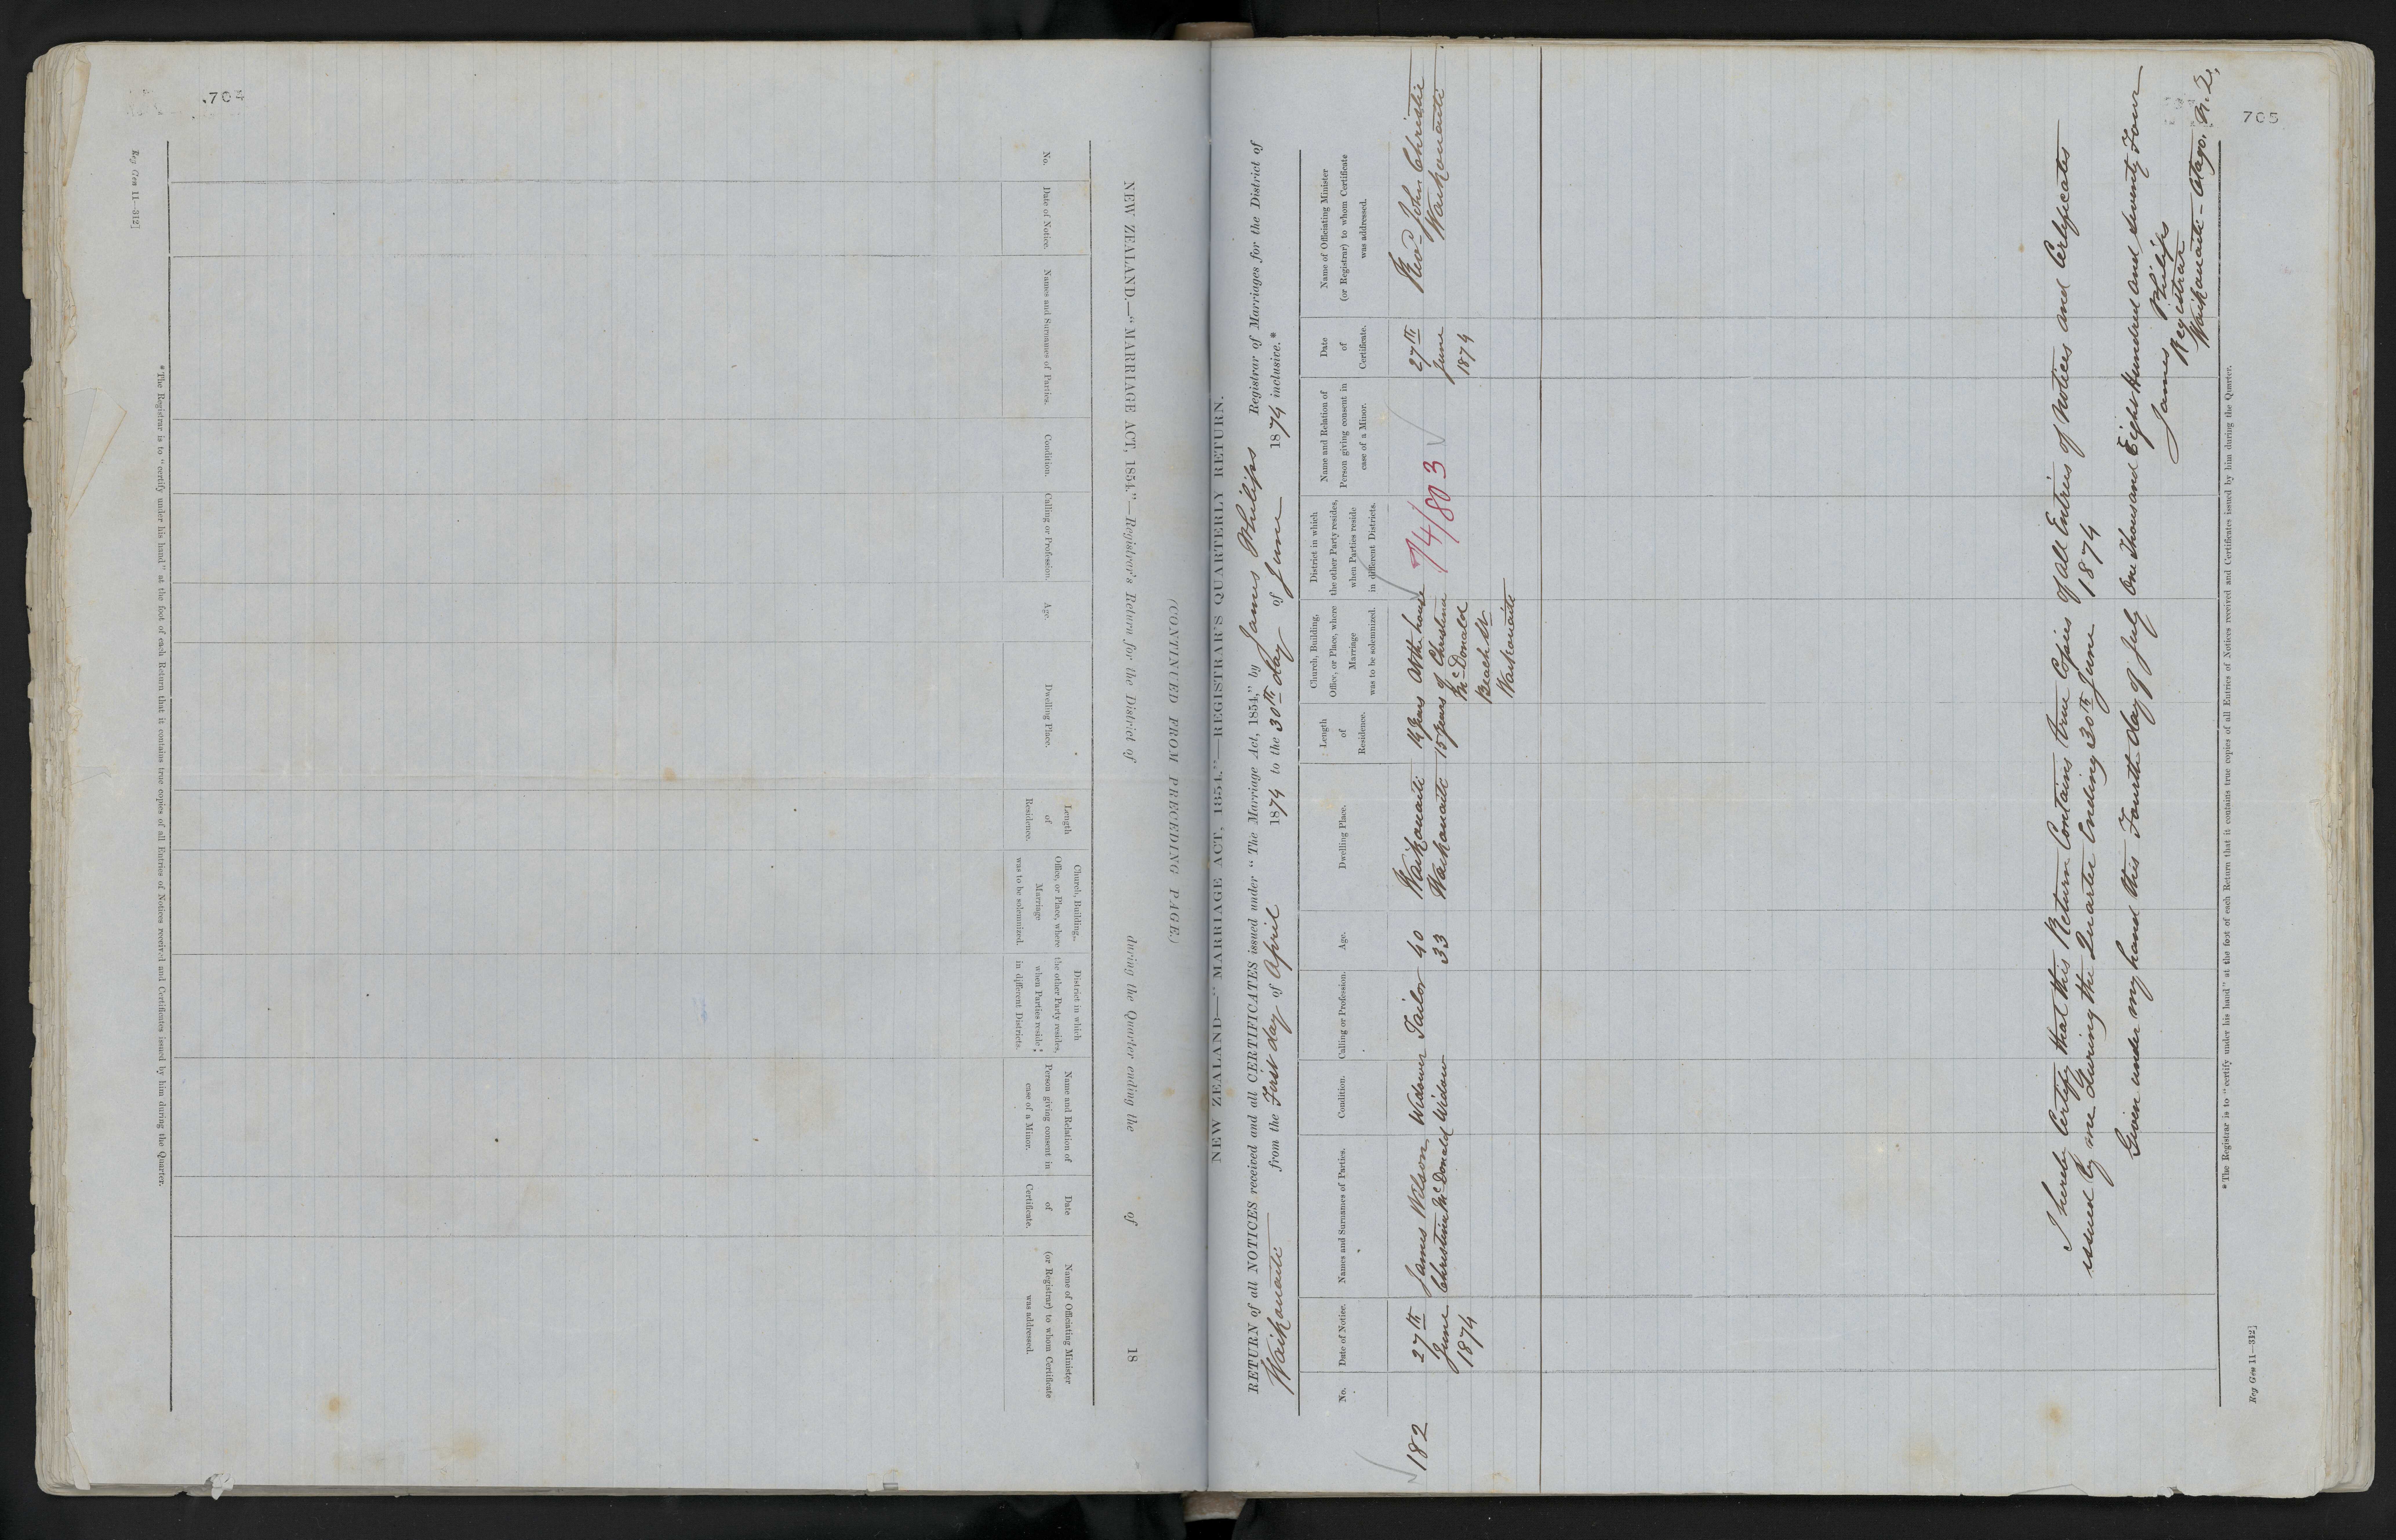 704
Reg Gen 11—312]
NEW ZEALAND.—"MARRIAGE ACT, 1854."—Registrar's Return for the District of during the Quarter ending the of 18
(CONTINUED FROM PRECEDING PAGE.)
No.
Date of Notice.
Names and Surnames of Parties.
Condition.
Calling or Profession.
Age.
Dwelling Place.
Length
of
Residence.
Church, Building,
Office, or Place, where
Marriage
was to be solemnized.
District in which
the other Party resides,
when Parties reside
in different Districts.
Name and Relation of
Person giving consent in
case of a Minor.
Date
of
Certificate.
Name of Officiating Minister
(or Registrar) to whom Certificate
was addressed.
* The Registrar is to "certify under his hand" at the foot of each Return that it contains true copies of all Entries of Notices received and Certificates issued by him during the Quarter.
705
NEW ZEALAND—"MARRIAGE ACT, 1854."—REGISTRAR'S QUARTERLY RETURN.
RETURN of all NOTICES received and all CERTIFICATES issued under "The Marriage Act, 1854," by James Philips Registrar of Marriages for the District of
Waikouaiti from the First day of April 1874 to the 30th day of June 1874 inclusive.*
No.
Date of Notice.
Names and Surnames of Parties.
Condition.
Calling or Profession.
Age.
Dwelling Place.
Length
of
Residence.
Church, Building,
Office, or Place, where
Marriage
was to be solemnized.
District in which
the other Party resides,
when Parties reside
in different Districts.
Name and Relation of
Person giving consent in
case of a Minor.
Date
of
Certificate.
Name of Officiating Minister
(or Registrar) to whom Certificate
was addressed.
182
27th
June
1874
James Wilson
Christina McDonald
Widower
Widow
Tailor
40
33
Waikouaiti
Waikouaiti
14 years
15 years
At the house
of Christina
McDonald
Beach St
Waikouaiti
74/803
27th
June
1874
Revd John Christie
Waikouaiti
I hereby Certify that this Return Contains true Copies of all Entries of Notices and Certificates
issued by me During the Quarter Ending 30th June 1874
Given under my hand this Fourth day of July One Thousand Eight Hundred and seventy Four
James Philips
Registrar
Waikouaiti - Otago. N.Z.
* The Registrar is to "certify under his hand" at the foot of each Return that it contains true copies of all Entries of Notices received and Certificates issued by him during the Quarter.
Reg Gen 11—312]